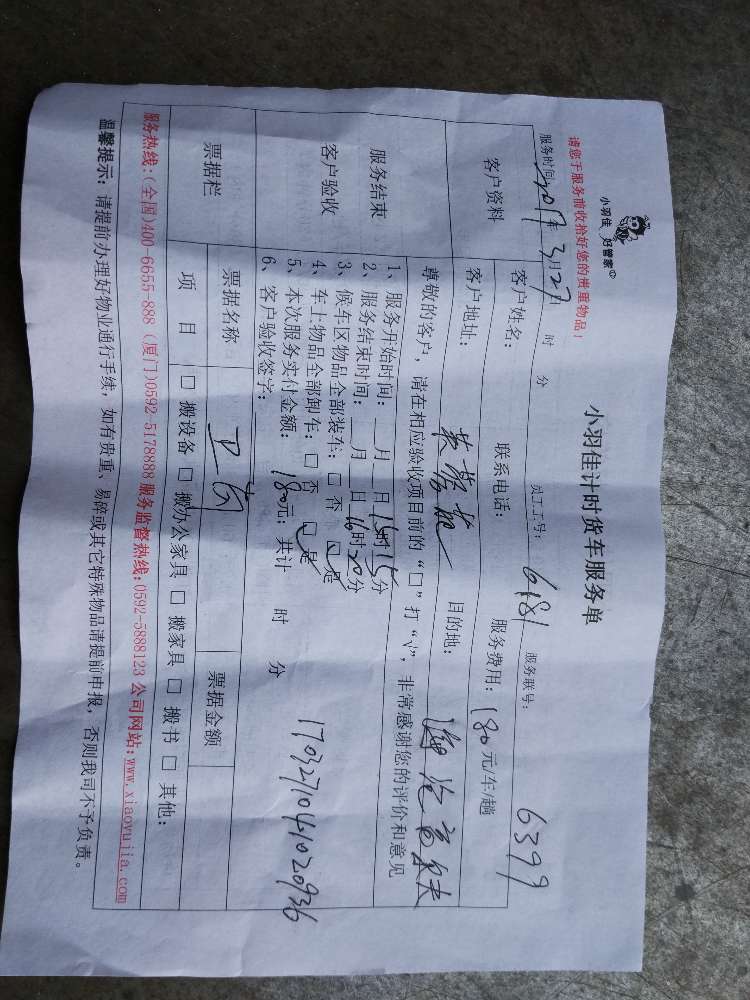 小羽佳 好管家
小羽佳计时货车服务单
请您于服务前收拾好您的贵重物品!
服务时间: 2017年3月27日 时 分 员工工号: 6181 服务联号: 6399
客户资料
客户姓名: 联系电话: 服务费用: 180元/车/趟
客户地址: 目的地: 海沧
尊敬的客户, 请在相应验收项目前的“□”打“√”, 非常感谢您的评价和意见
服务结束
客户验收
1、服务开始时间: 月 日15时15分
2、服务结束时间: 月 日16时20分
3、候车区物品全部装车: □ 否 □ 是
4、车上物品全部卸车: □ 否 □ 是
5、本次服务实付金额: 180元; 共计 时 分
6、客户验收签字:
1703271041020936
票据栏
票据名称 票据金额
项 目 □ 搬设备 □ 搬办公家具 □ 搬家具 □ 搬书 □ 其他:
服务热线:(全国)400-6655-888 (厦门)0592-5178888 服务监督热线:0592-5888123 公司网站:www.xiaoyujia.com
温馨提示: 请提前办理好物业通行手续, 如有贵重、易碎或其它特殊物品请提前申报, 否则我司不予负责。